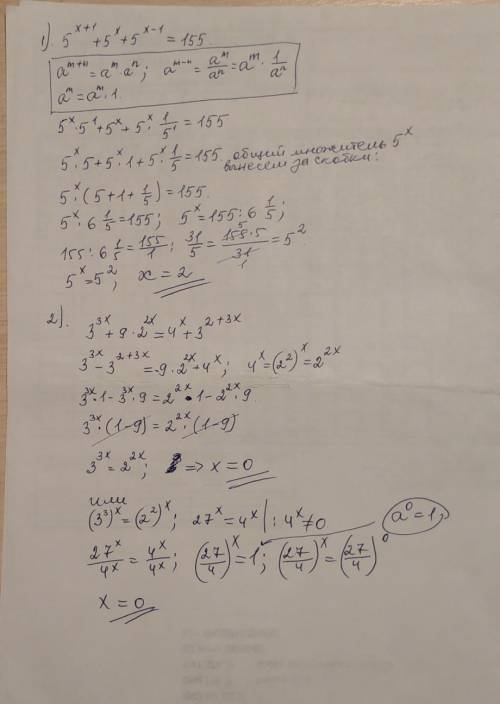 1). 5^(x+1) + 5^x + 5^(x-1) = 155.
a^(m+n) = a^m · a^n; a^(m-n) = a^m/a^n = a^m · 1/a^n
a^m = a^m · 1.
5^x · 5^1 + 5^x + 5^x · 1/5^1 = 155
5^x · 5 + 5^x · 1 + 5^x · 1/5 = 155. общий множитель 5^x
вынесем за скобки:
5^x · (5 + 1 + 1/5) = 155.
5^x · 6 1/5 = 155; 5^x = 155 : 6 1/5;
155 : 6 1/5 = 155/1 : 31/5 = 155 · 5/31 = 5^2
5^x = 5^2; x = 2
2).
3^(3x) + 9 · 2^(2x) = 4^x + 3^(2+3x)
3^(3x) - 3^(2+3x) = -9 · 2^(2x) + 4^x; 4^x = (2^2)^x = 2^(2x)
3^(3x) · 1 - 3^(3x) · 9 = 2^(2x) · 1 - 2^(2x) · 9.
3^(3x) · (1-9) = 2^(2x) · (1-9)
3^(3x) = 2^(2x); => x = 0
или
(3^3)^x = (2^2)^x; 27^x = 4^x | : 4^x ≠ 0 a^0 = 1;
27^x/4^x = 4^x/4^x; (27/4)^x = 1; (27/4)^x = (27/4)^0
x = 0